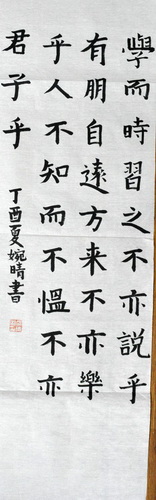 學而時習之不亦説乎
有朋自遠方来不亦樂
乎人不知而不愠不亦
君子乎
丁酉夏婉晴書